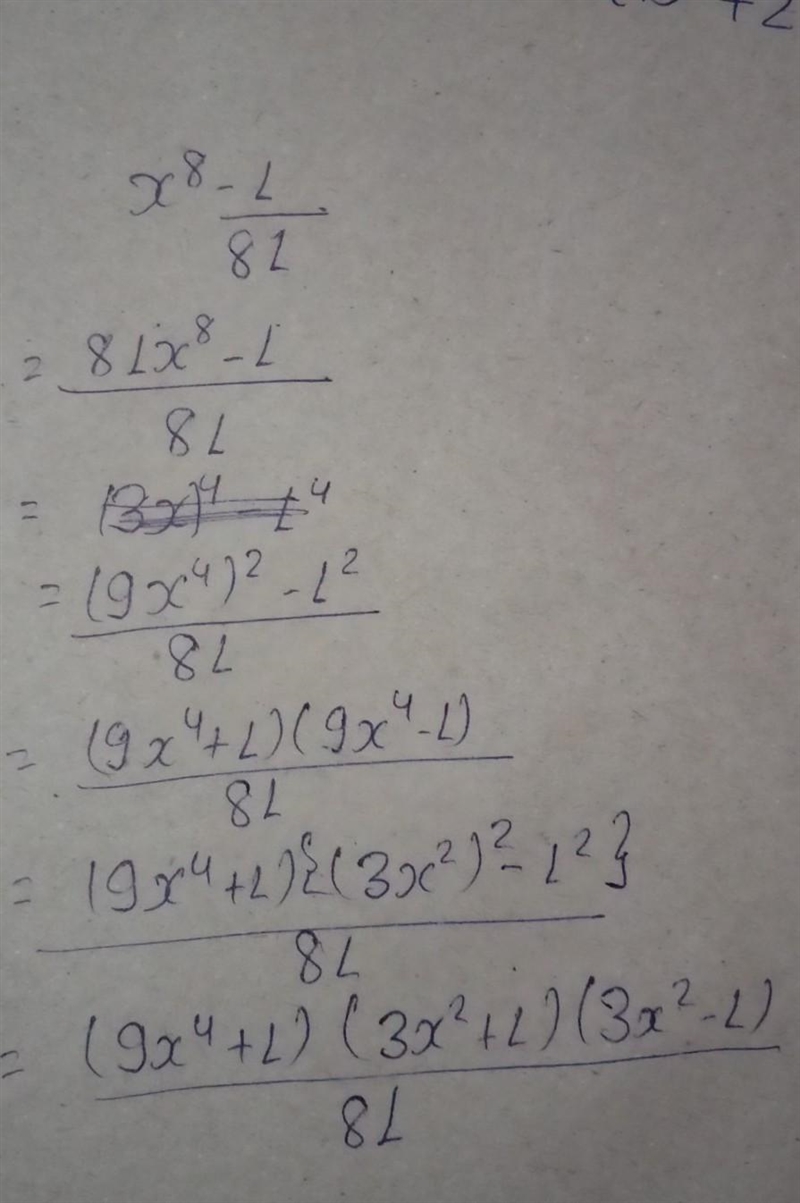 +2
x⁸ - 1
81
= 81x⁸ - 1
81
= (3x)⁴ - 1⁴
= (9x⁴)² - 1²
81
= (9x⁴+1)(9x⁴-1)
81
= (9x⁴+1){(3x²)² - 1²}
81
= (9x⁴+1)(3x²+1)(3x²-1)
81